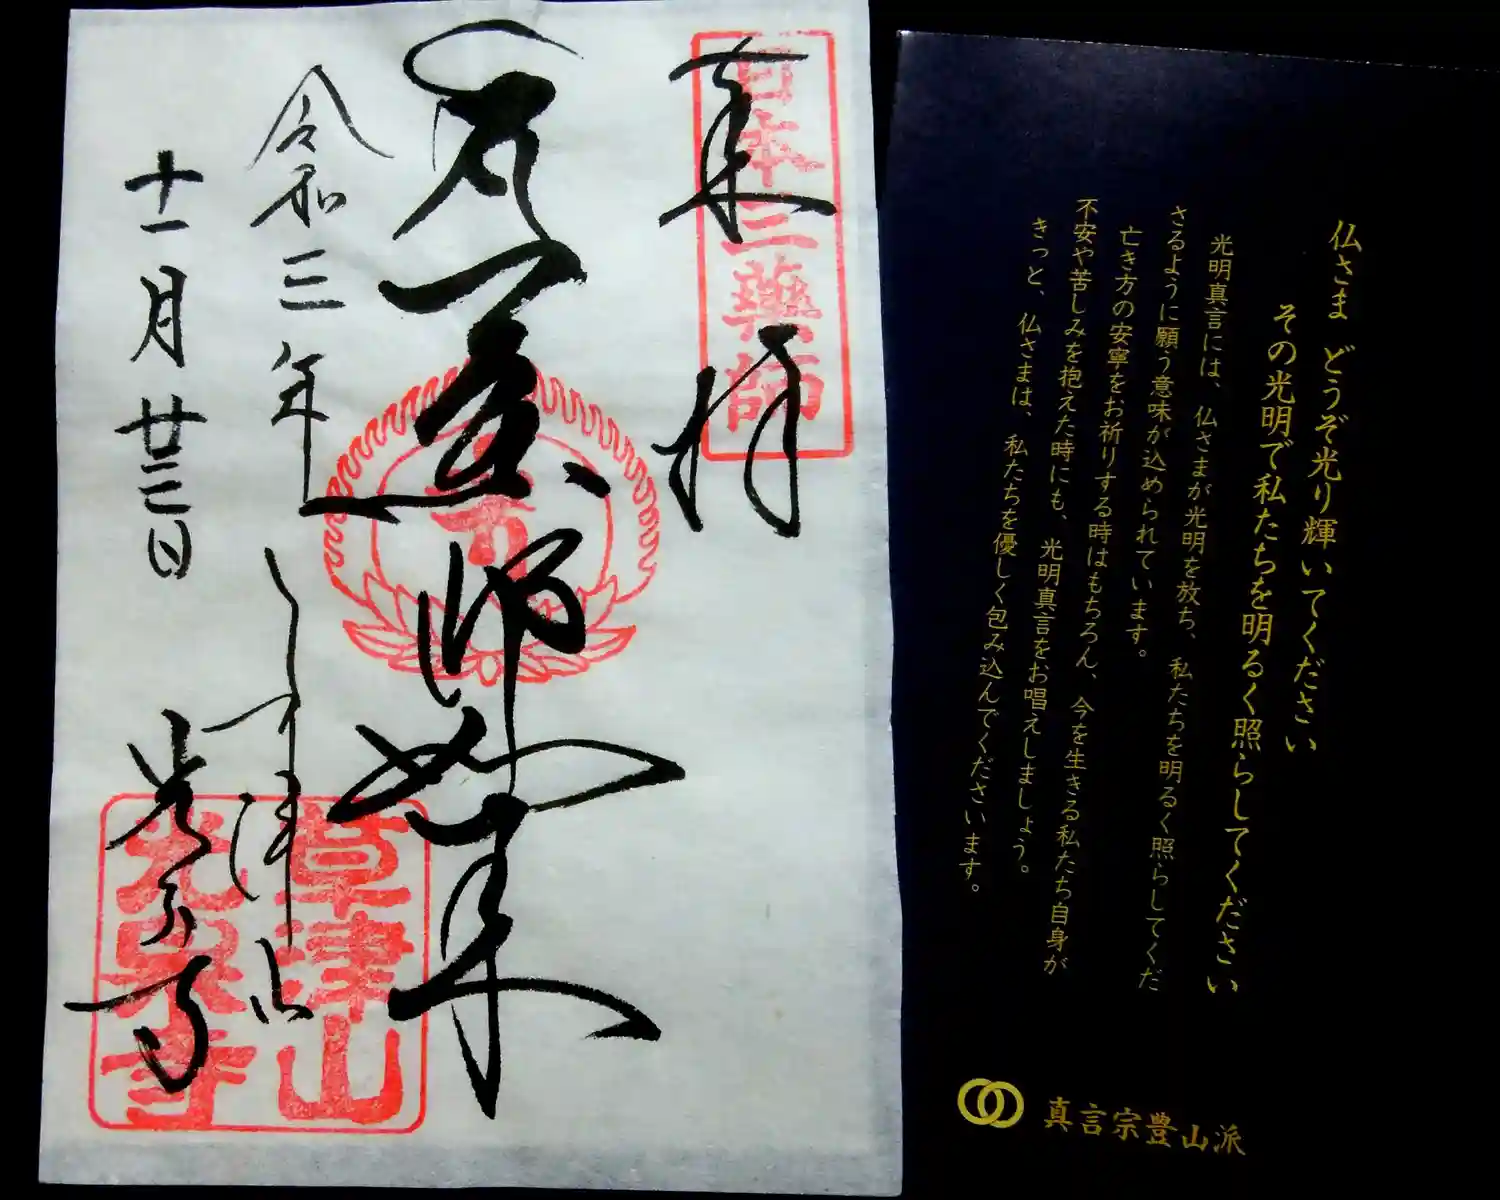 奉拝
日本三薬師
瑠璃光
薬師如来
令和三年
十一月廿三日
草津山
光泉寺
草津山
光泉寺
仏さま どうぞ光り輝いてください
その光明で私たちを明るく照らしてください
光明真言には、仏さまが光明を放ち、私たちを明るく照らしてくだ
さるように願う意味が込められています。
亡き方の安寧をお祈りする時はもちろん、今を生きる私たち自身が
不安や苦しみを抱えた時にも、光明真言をお唱えしましょう。
きっと、仏さまは、私たちを優しく包み込んでくださいます。
真言宗豊山派